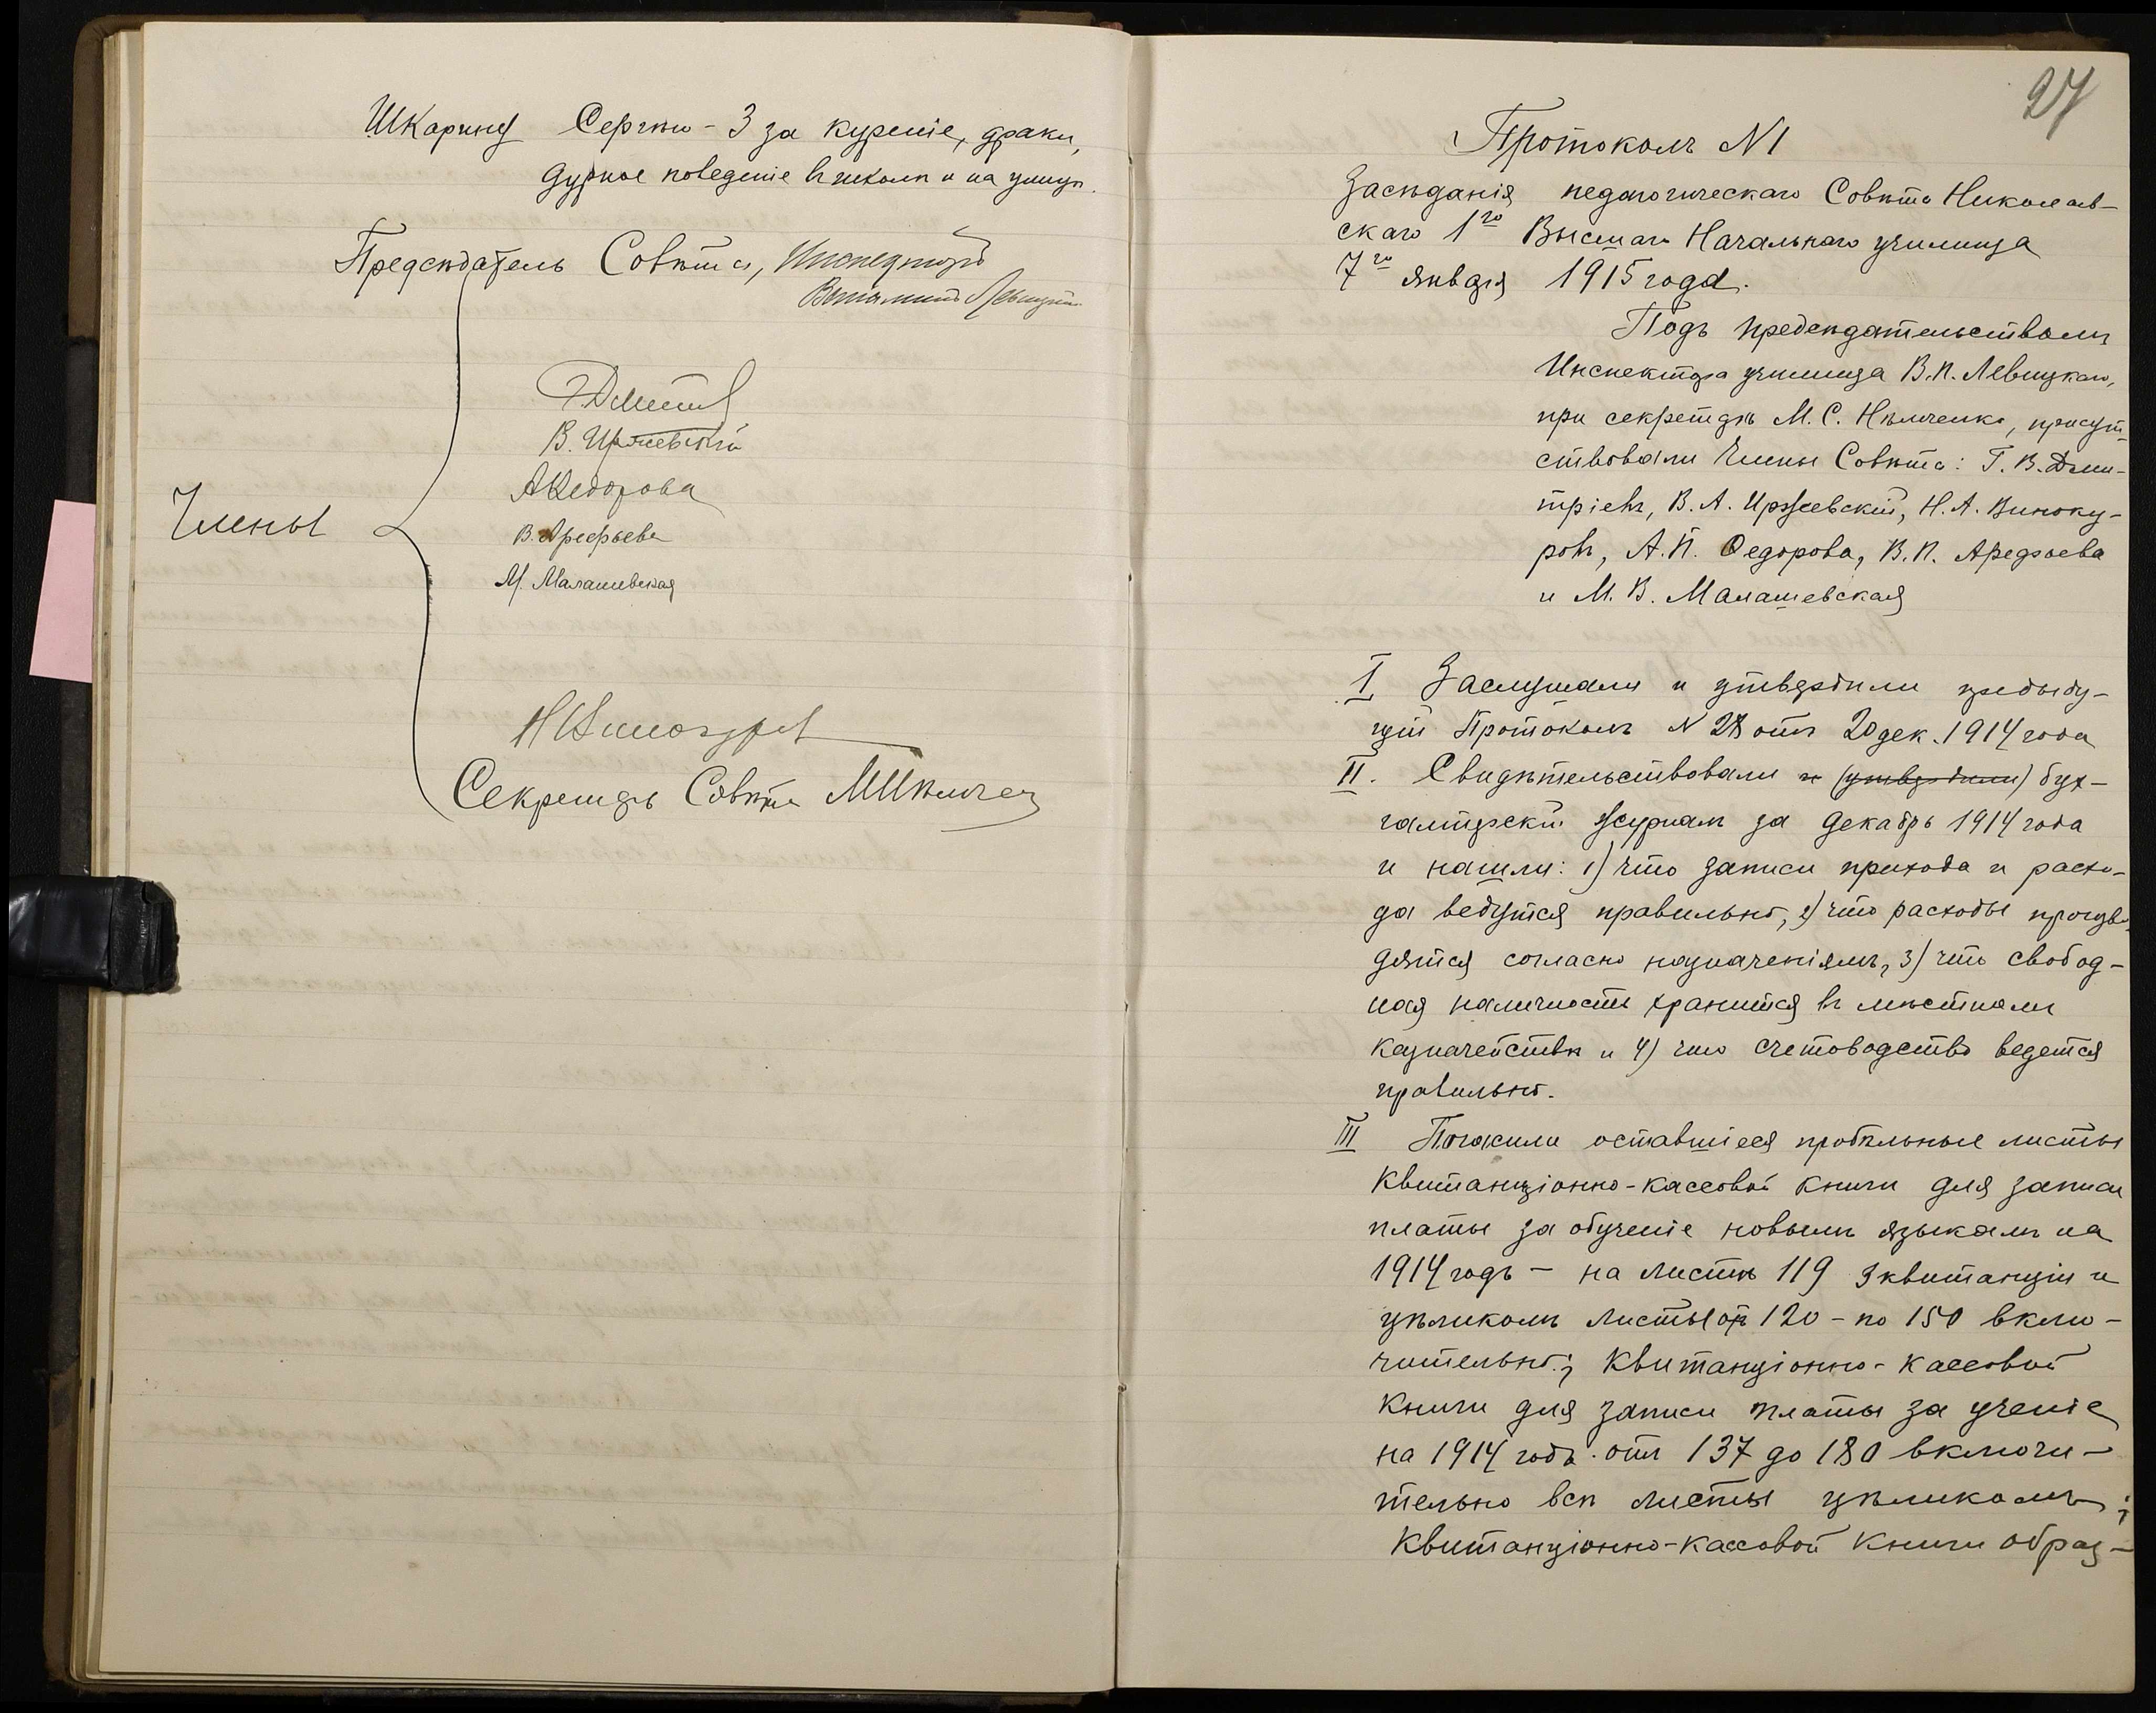 Шкарину Сергѣю - 3 за куреніе, драки,
дурное поведеніе въ школѣ и на улицѣ.
Предсѣдатель Совѣта, Инспекторъ
Левицкій
В. Иржевскій
АѲедорова
Члены
В. Арефьева
М. Малашевская
Секретарь Совѣта
27
Протоколъ N 1
Засѣданія педагогическаго Совѣта Николаев-
скаго 1го Высшаго Начальнаго училища
7го января 1915 года.
Подъ предсѣдательствомъ
Инспектора училища В. П. Левицкаго,
при секретарѣ М. С. Нѣмченко, присут-
ствовали Члены Совѣта: Г. В. Дми-
тріевъ, В. А. Иржевскій, Н. А. Виноку-
ровъ, А. П. Ѳедорова, В. П. Арефьева
и М. В. Малашевская
I Заслушали и утвердили предыду-
щій Протоколъ N 28 отъ 20 дек. 1914 года
II. Свидѣтельствовали и (утвердили) бух-
галтерскій журналъ за декабрь 1914 года
и нашли: 1) что записи прихода и расхо-
да ведутся правильно, 2) что расходы произво-
дятся согласно назначеніямъ, 3) что свобод-
ная наличность хранится въ мѣстномъ
казначействѣ и 4) что счетоводство ведется
правильно.
III Погасили оставшіеся пробѣльные листы
квитанціонно-кассовой книги для записи
платы за обученіе новымъ языкамъ на
1914 годъ - на листѣ 119 3 квитанціи и
цѣликомъ листы отъ 120 - по 150 вклю-
чительно; квитанціонно-кассовой
книги для записи платы за ученіе
на 1914 годъ отъ 137 до 180 включи-
тельно всѣ листы цѣликомъ;
квитанціонно-кассовой книги образ-